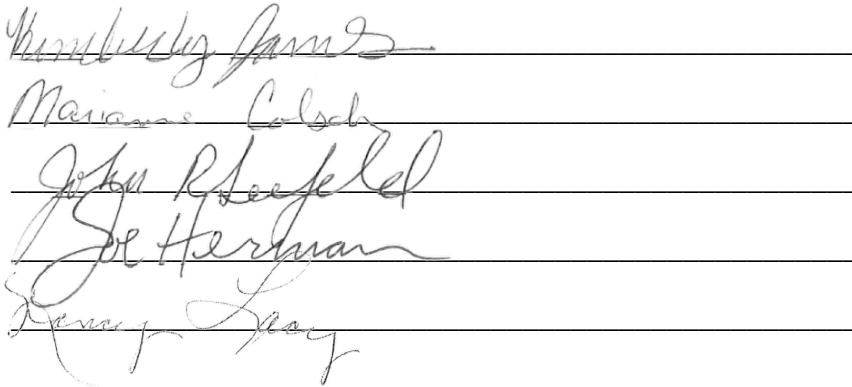 Kimberly James
Marianne Colsch
John R Seefeld
Joe Herman
Lacy